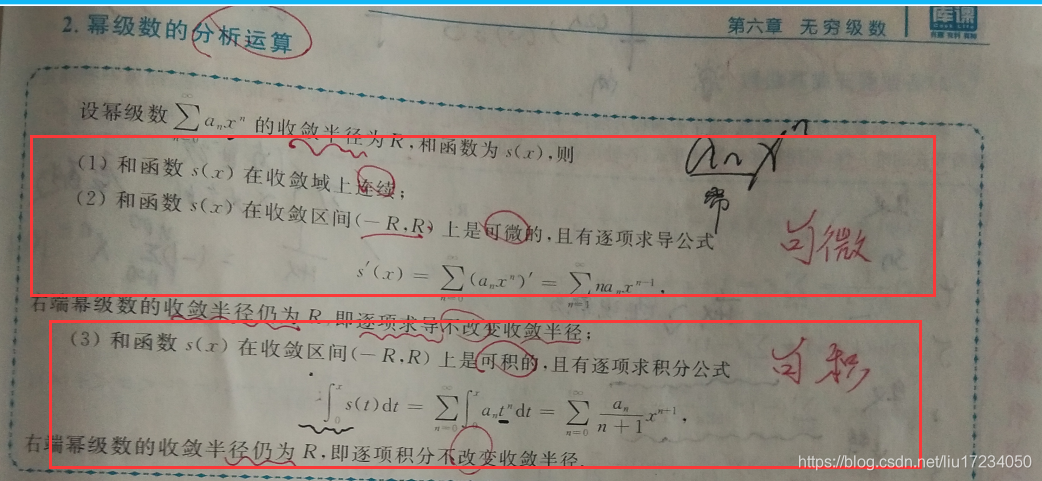 2. 幂级数的分析运算
第六章 无穷级数
库课
设幂级数 ∑_{n=0}^{∞} a_n x^n 的收敛半径为 R,和函数为 s(x),则
a_n x^n
幂
(1) 和函数 s(x) 在收敛域上连续;
(2) 和函数 s(x) 在收敛区间(−R,R) 上是可微的,且有逐项求导公式
可微
s′(x) = ∑_{n=0}^{∞} (a_n x^n)′ = ∑_{n=1}^{∞} na_n x^{n−1},
右端幂级数的收敛半径仍为 R,即逐项求导不改变收敛半径;
(3) 和函数 s(x) 在收敛区间(−R,R) 上是可积的,且有逐项求积分公式
可积
∫_0^x s(t)dt = ∑_{n=0}^{∞} ∫_0^x a_n t^n dt = ∑_{n=0}^{∞} \frac{a_n}{n+1} x^{n+1},
右端幂级数的收敛半径仍为 R,即逐项积分不改变收敛半径.
https://blog.csdn.net/liu17234050